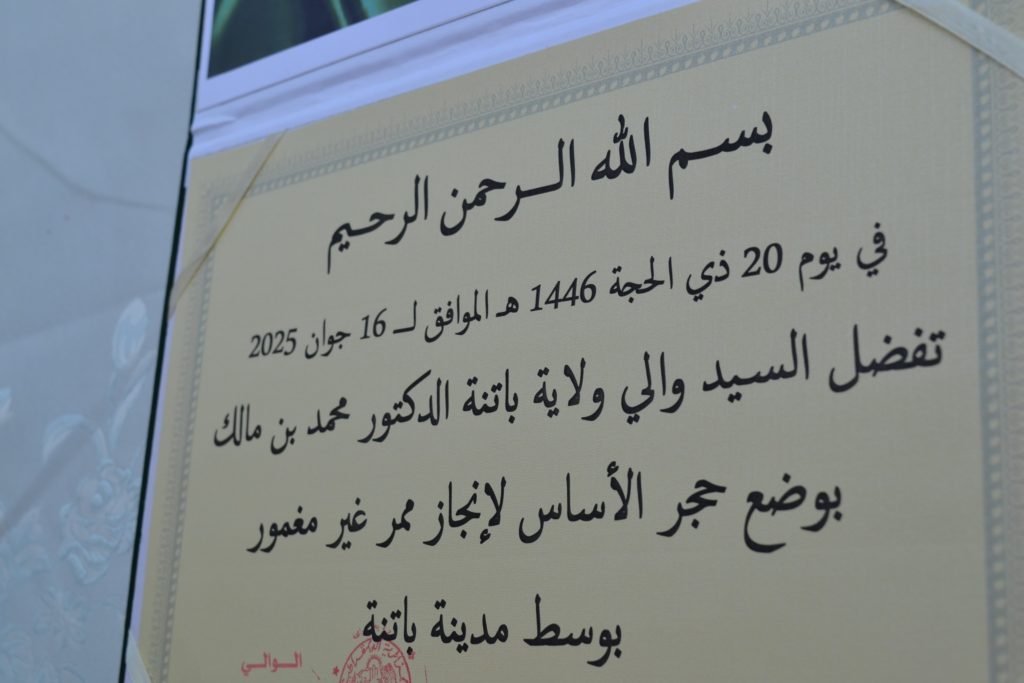 بسم الله الرحمن الرحيم
في يوم 20 ذي الحجة 1446 هـ الموافق لـ 16 جوان 2025
تفضل السيد والي ولاية باتنة الدكتور محمد بن مالك
بوضع حجر الأساس لإنجاز ممر غير مغمور
بوسط مدينة باتنة
الوالي